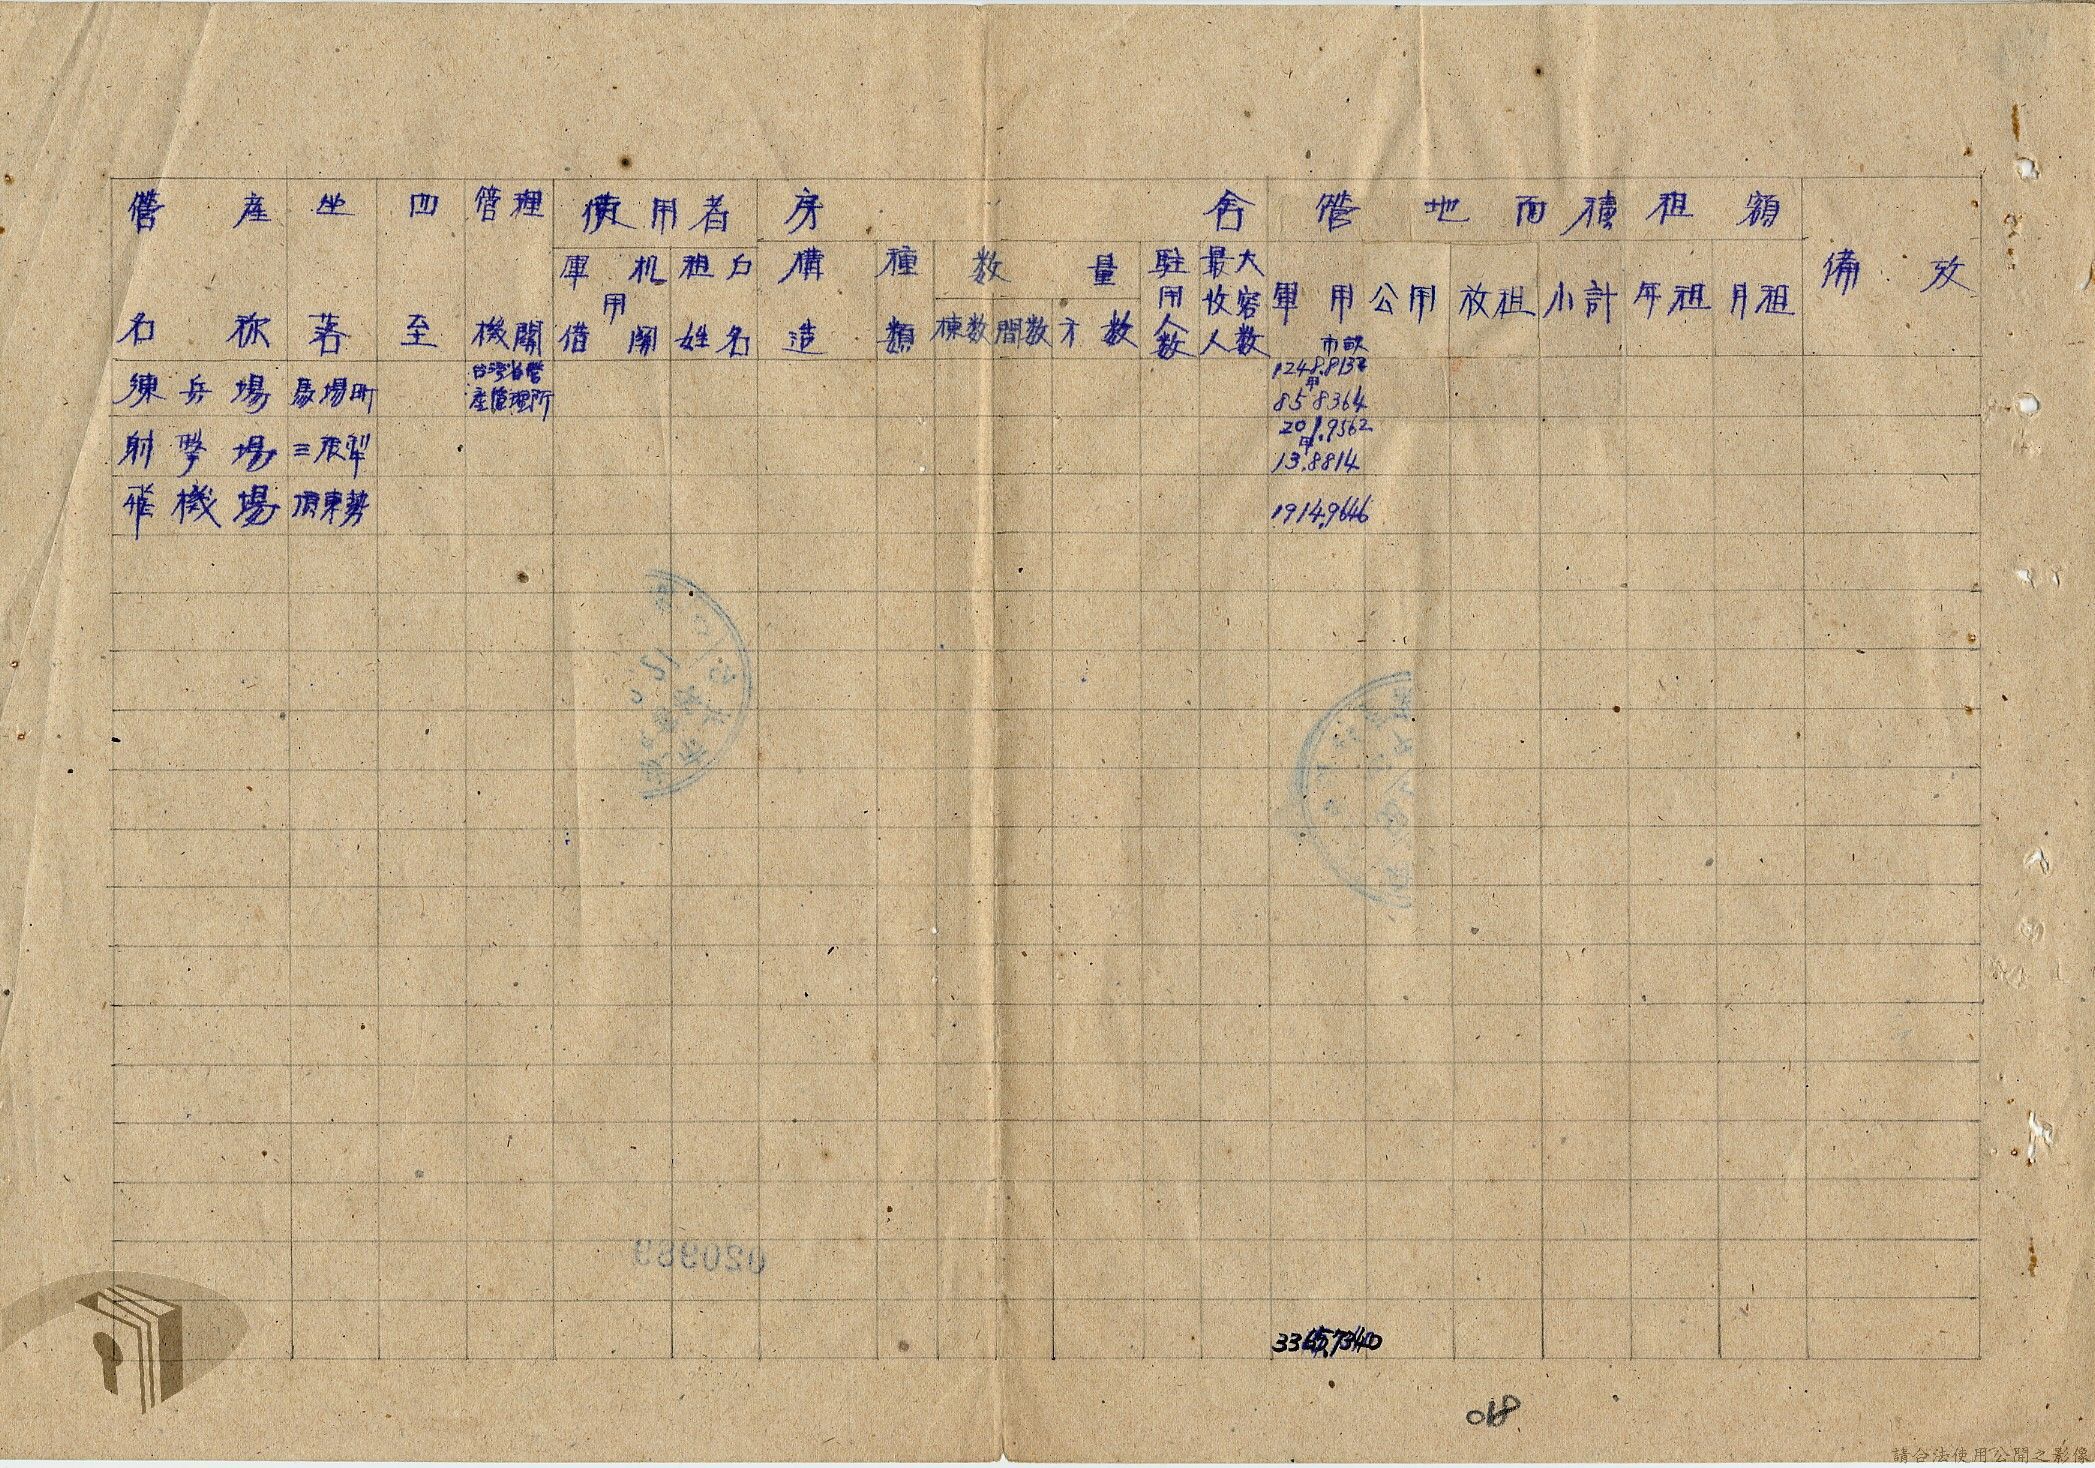 營產 坐 四 管理 使用者 房 舍 營地面積 租額
名称 落 至 機關 軍用机關 租户 構 種 数量 駐用人数 最大收容人数 軍用 公用 放租 小計 年租 月租 備攷
借 姓名 造 類 棟数 間数 才数
市畝
練兵場 馬場町 台湾省營產管理所 1248.8132
甲
85 8364
射擊場 三張犂 201.9562
甲
13.8814
飛機場 頂東勢 1914.9646
020989
3365.7340
018
請合法使用公開之影像